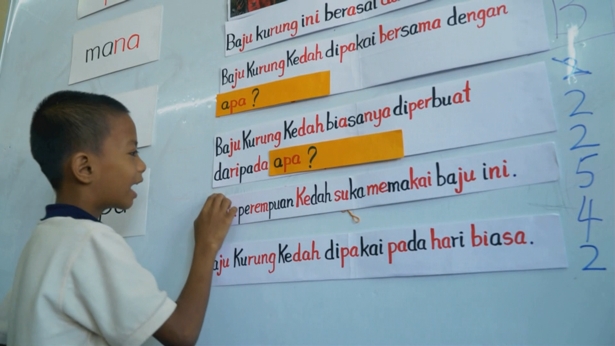 mana
Baju kurung ini berasal
Baju Kurung Kedah dipakai bersama dengan
apa ?
Baju Kurung Kedah biasanya diperbuat
daripada apa ?
perempuan Kedah suka memakai baju ini.
Kurung Kedah dipakai pada hari biasa.
2
2
5
4
2